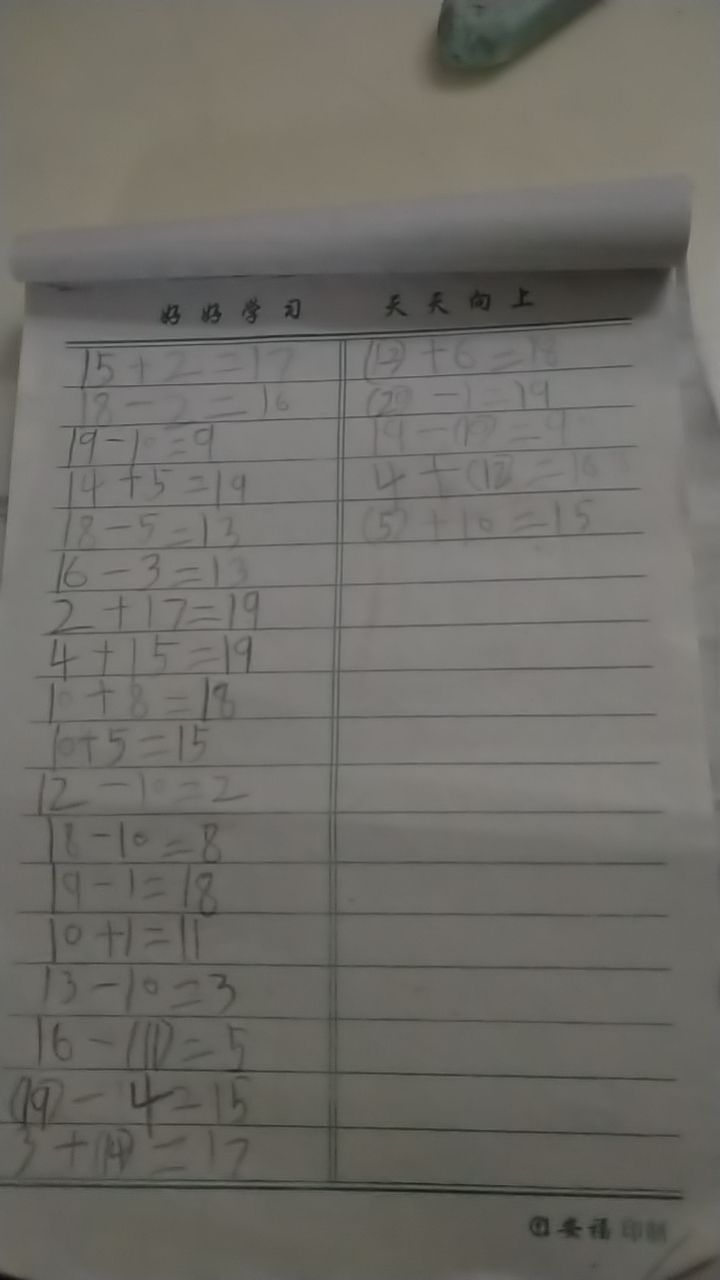 好好学习 天天向上
15+2=17
18-2=16
19-10=9
14+5=19
18-5=13
16-3=13
2+17=19
4+15=19
10+8=18
10+5=15
12-10=2
18-10=8
19-1=18
10+1=11
13-10=3
16-(11)=5
(19)-4=15
3+(14)=17
(12)+6=18
(20)-1=19
19-(10)=9
4+(12)=16
(5)+10=15
安福印制